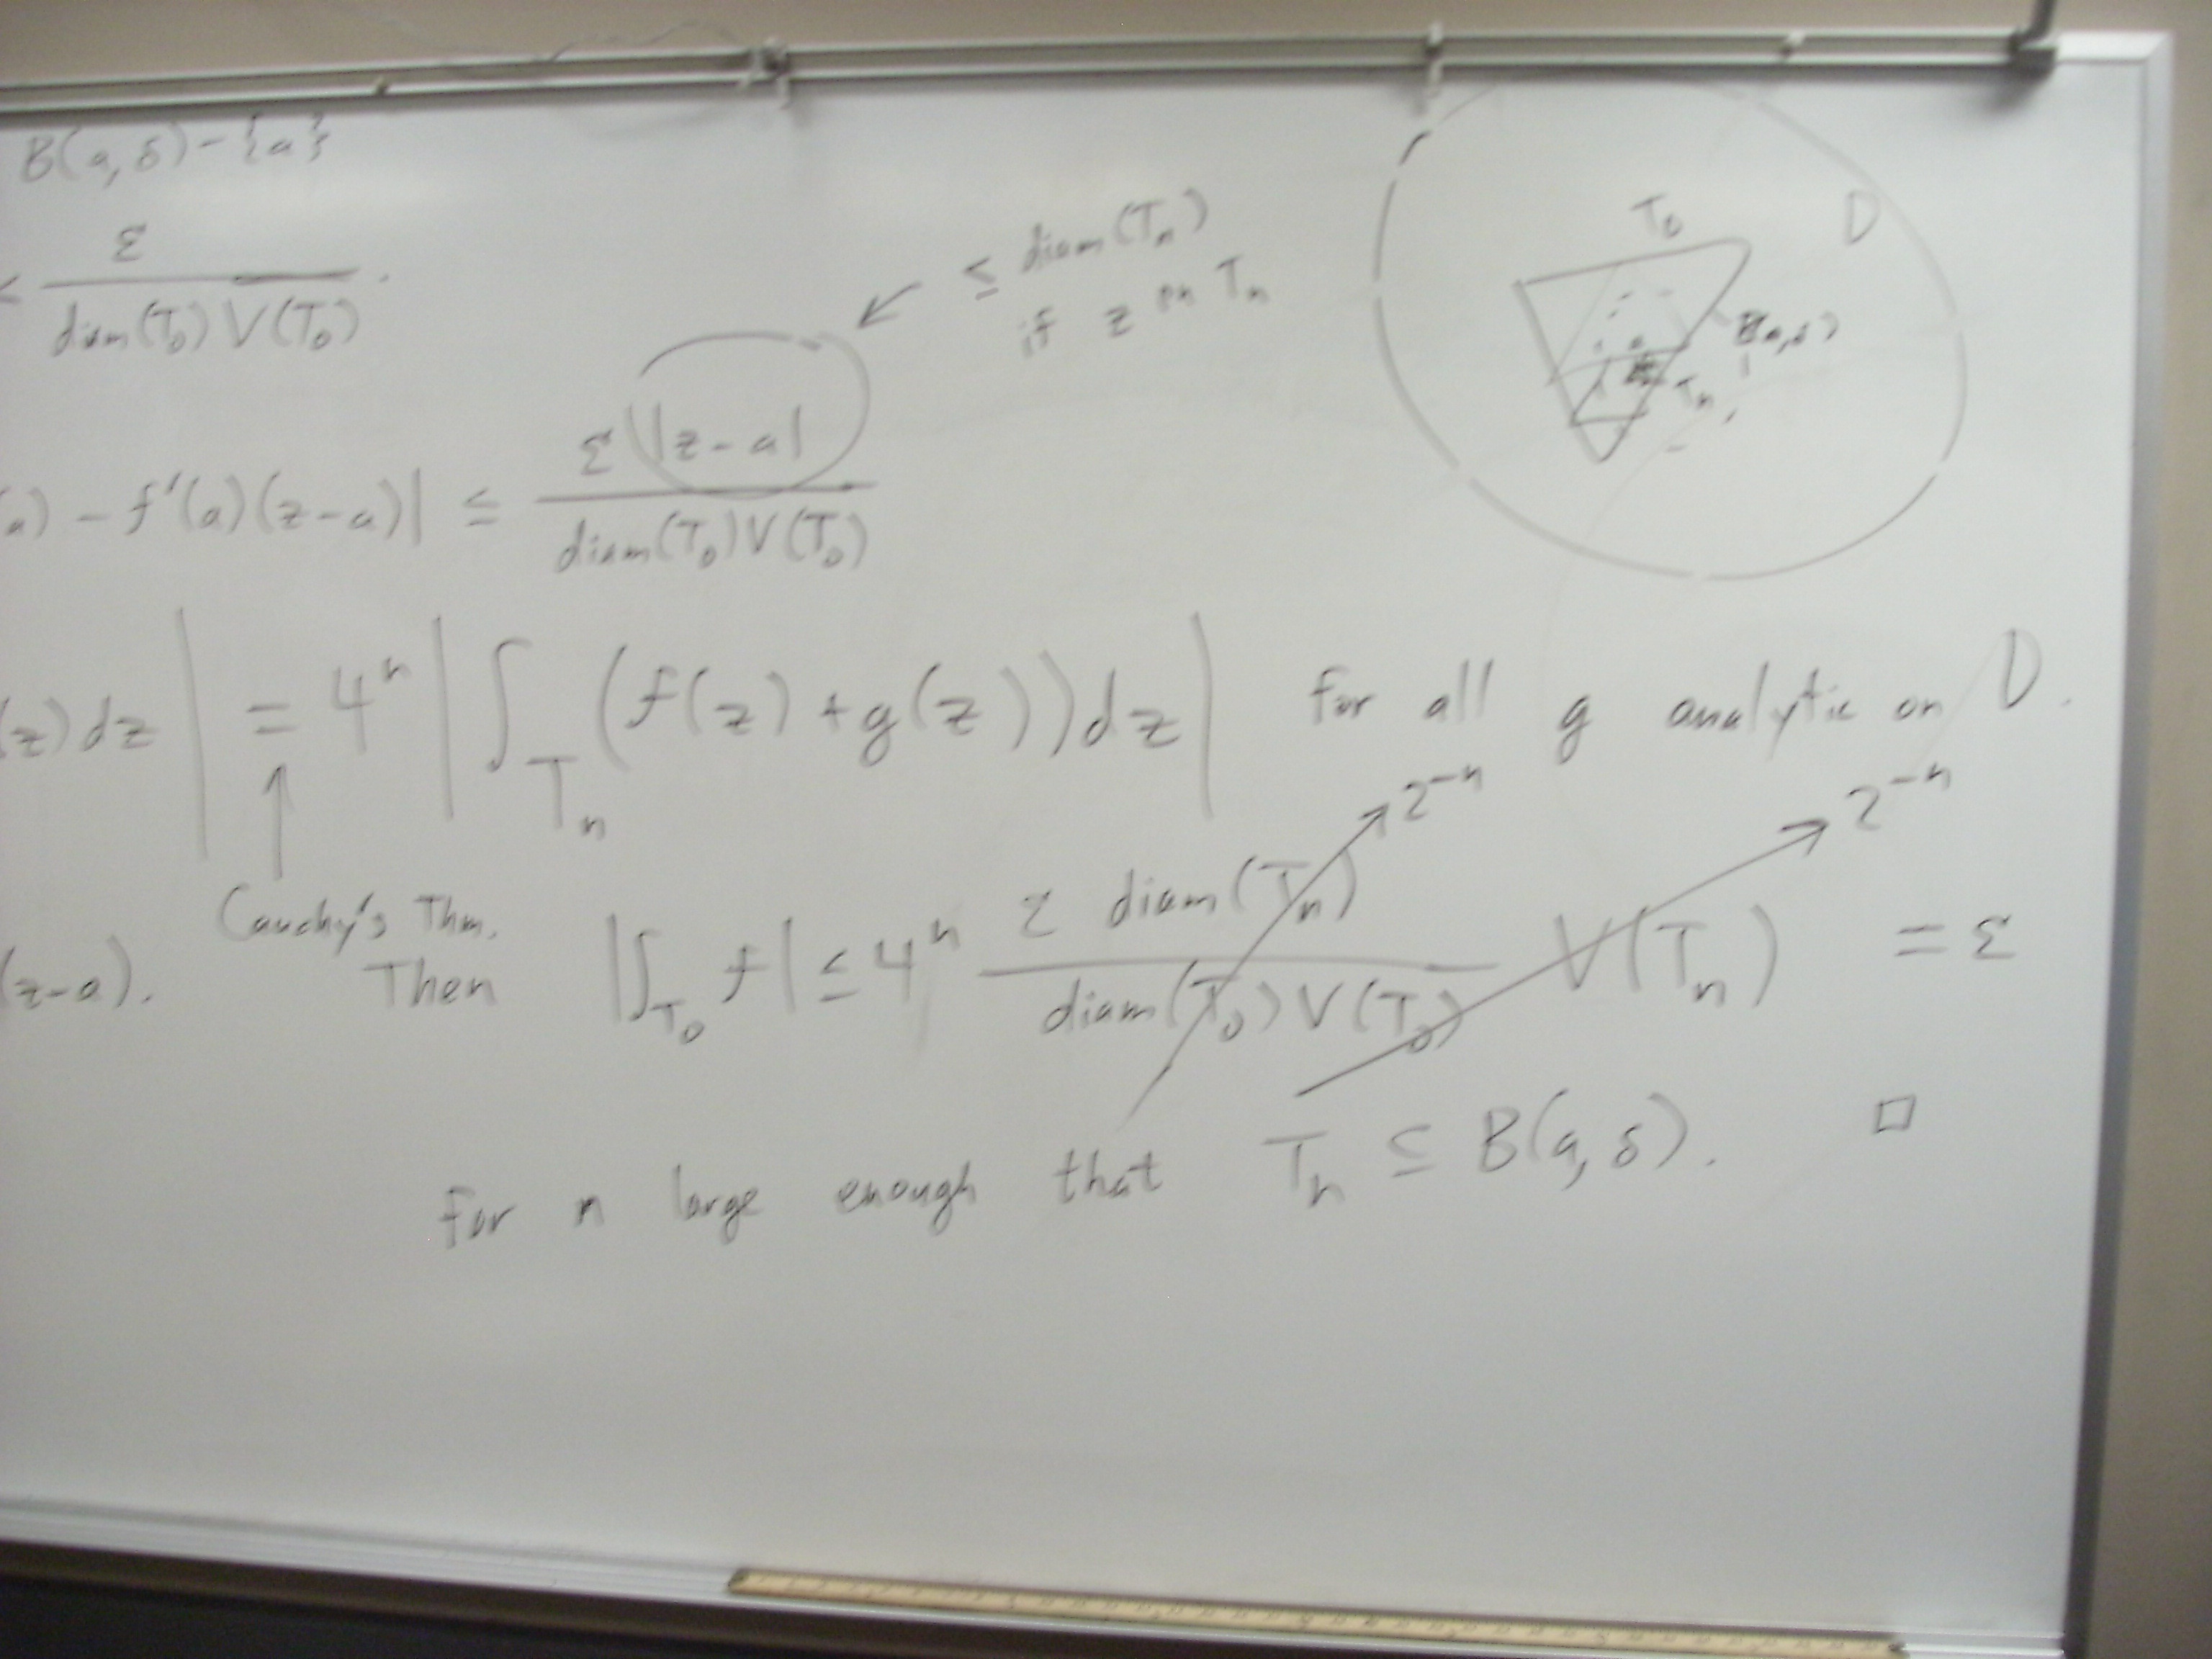 B(a, δ) - {a}
< ε / diam(T₀) V(T₀) .
≤ diam(Tₙ)
if z on Tₙ
T₀ D
B(a, δ)
Tₙ
(a) - f'(a)(z-a)| ≤ ε |z-a| / diam(T₀) V(T₀)
(z) dz | = 4ⁿ | ∫_Tₙ (f(z) + g(z)) dz | for all g analytic on D.
Cauchy's Thm.
2⁻ⁿ 2⁻ⁿ
(z-a). Then |∫_T₀ f| ≤ 4ⁿ ε diam(Tₙ) / diam(T₀) V(T₀) V(Tₙ) = ε
for n large enough that Tₙ ⊆ B(a, δ). □